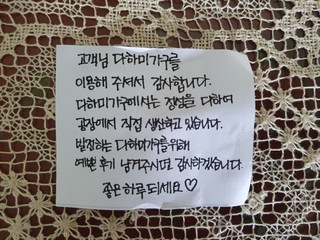 고객님 다하미가구를
이용해 주셔서 감사합니다.
다하미가구에서는 정성을 다하여
공장에서 직접 생산하고 있습니다.
발전하는 다하미가구를위해
예쁜 후기 남겨주시면 감사하겠습니다.
좋은하루되세요♡